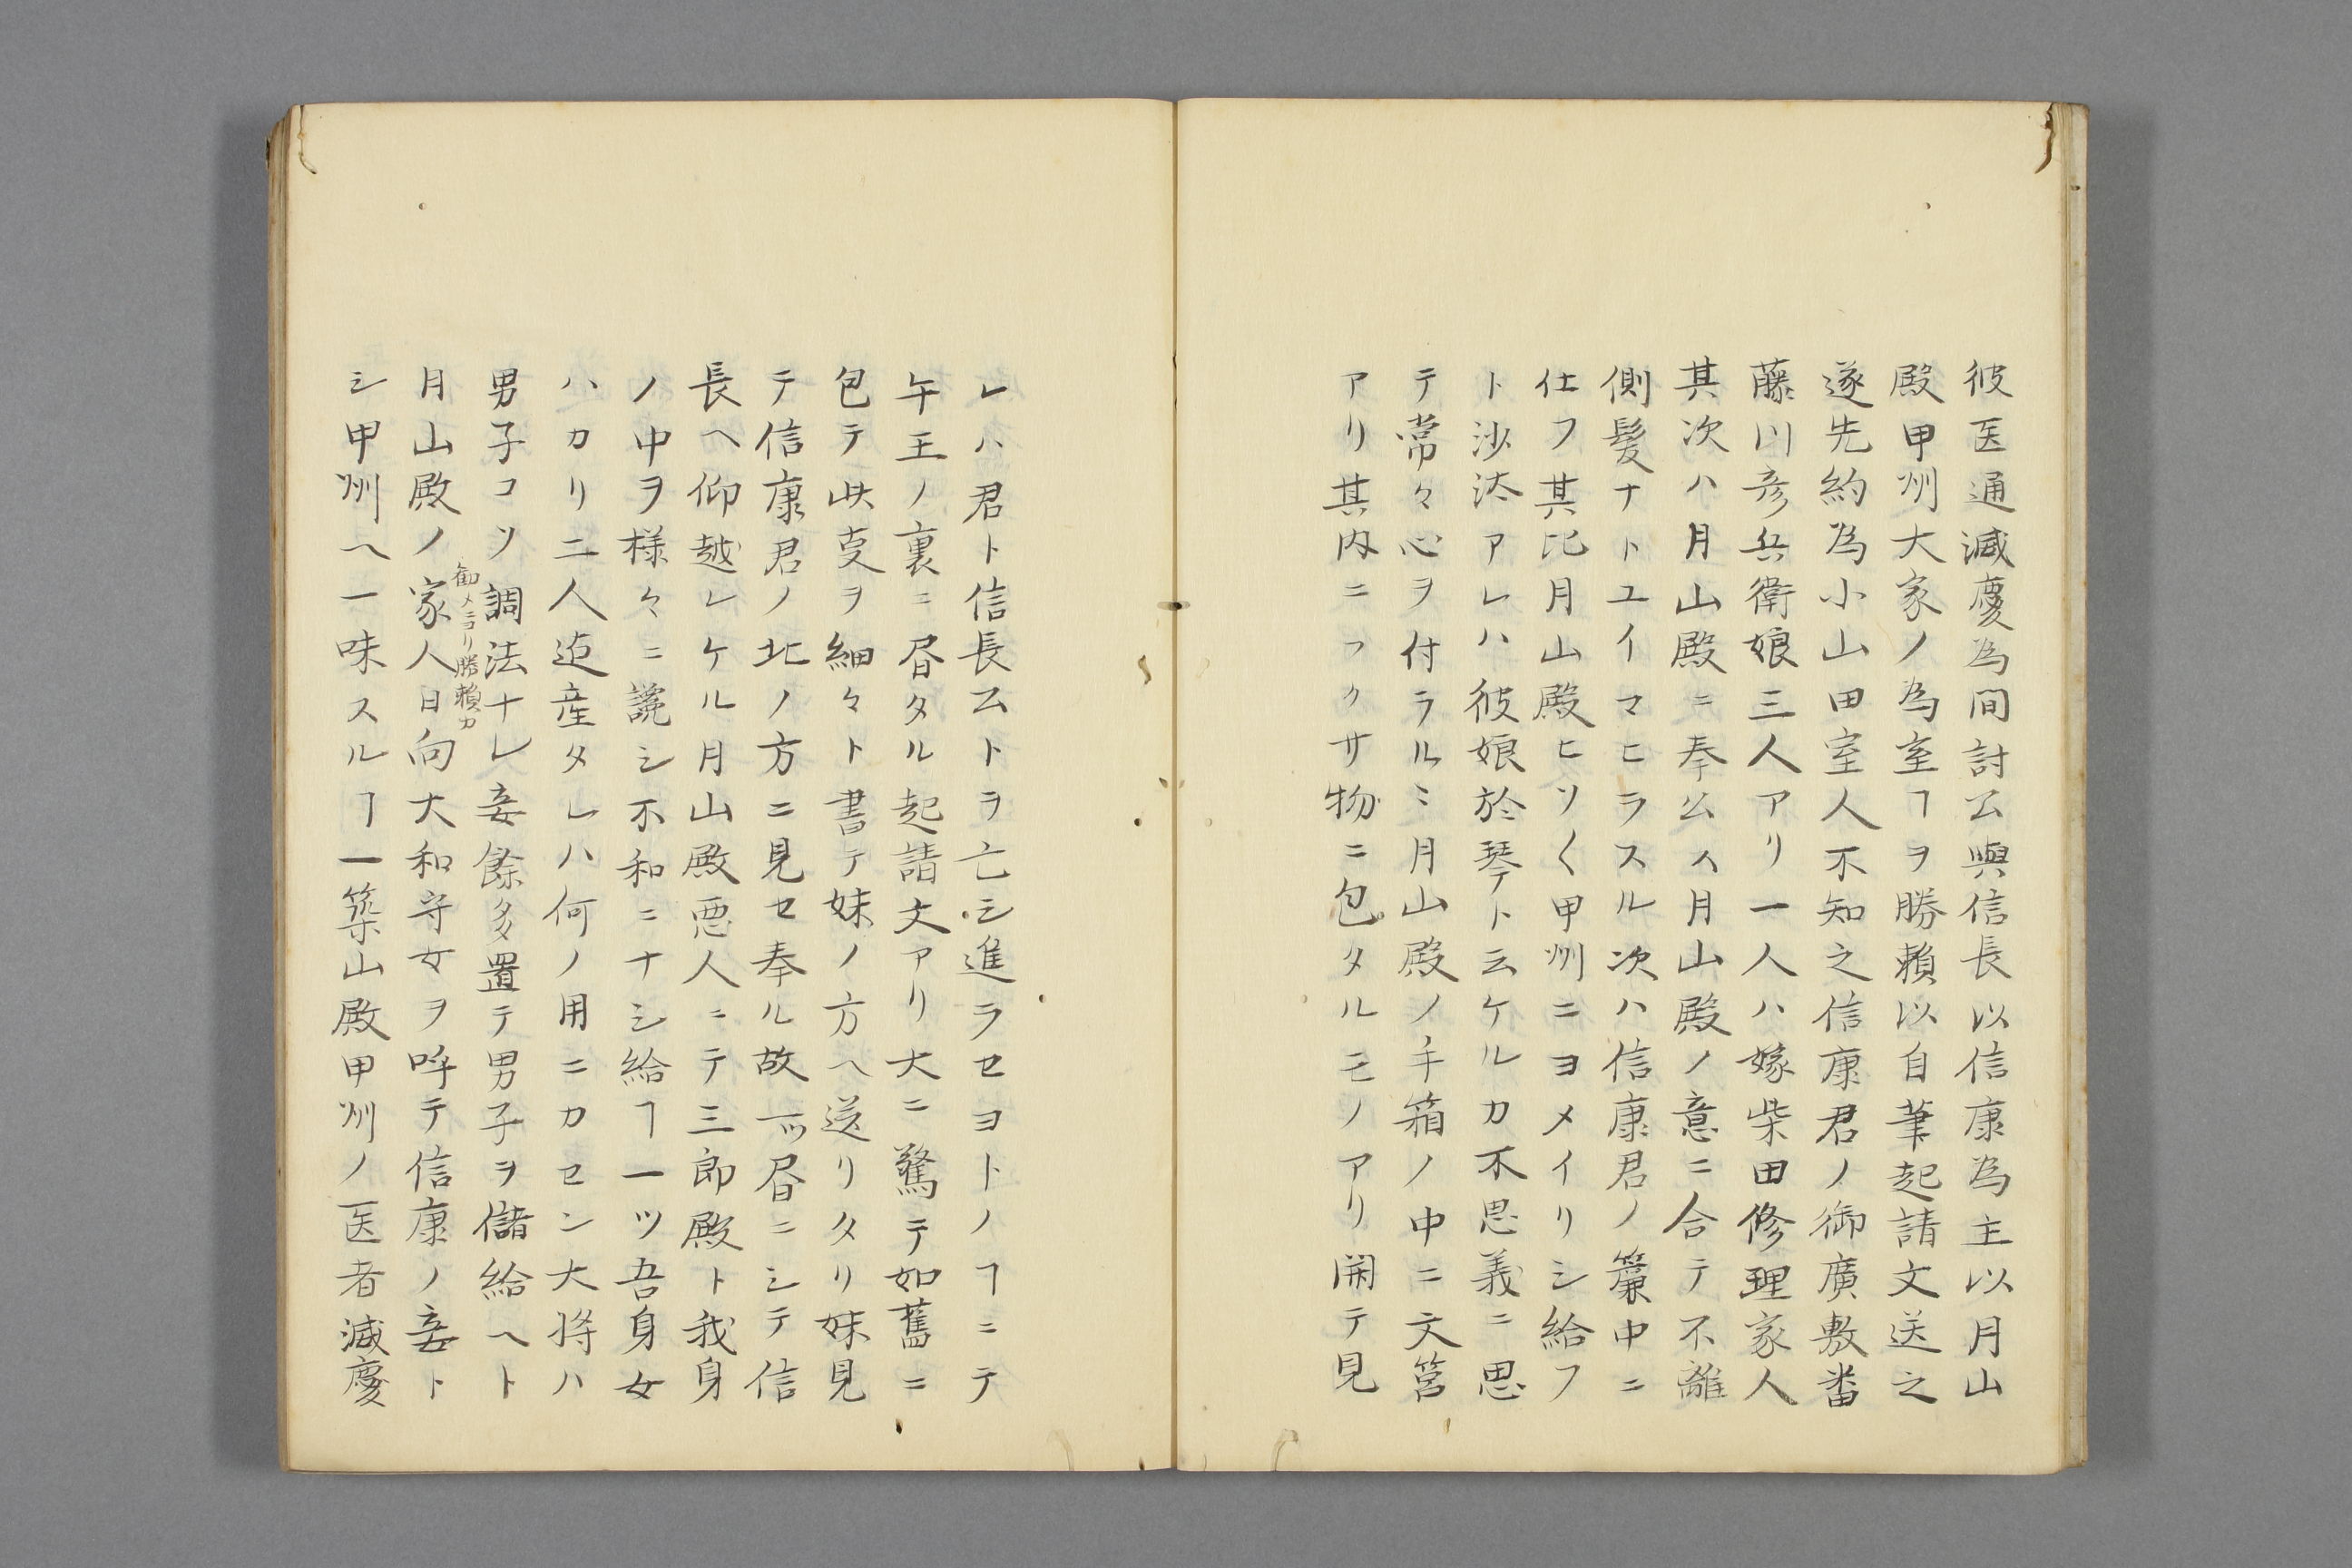 彼医通減慶為間討公與信長以信康為主以月山
殿甲州大家ノ為室ヿヲ勝頼以自筆起請文送之
遂先約為小山田室人不知之信康君ノ御廣敷番
藤川彦兵衛娘三人アリ一人ハ嫁柴田修理家人
其次ハ月山殿ニ奉公ス月山殿ノ意ニ合テ不離
側髪ナトユイマヒラスル次ハ信康君ノ簾中ニ
仕フ其比月山殿ヒソく甲州ニヨメイリシ給フ
ト沙汰アレハ彼娘於琴ト云ケルカ不思義ニ思
テ常々心ヲ付ラルミ月山殿ノ手箱ノ中ニ文筥
アリ其内ニフクサ物ニ包タルモノアリ開テ見
レハ君ト信長公トヲ亡シ進ラセヨトノヿニテ
午王ノ裏ニ昼タル起請文アリ大ニ驚テ如舊ニ
包テ此叓ヲ細々ト書テ妹ノ方ヘ送リタリ妹見
テ信康君ノ北ノ方ニ見セ奉ル故一ツ昼ニシテ信
長ヘ仰越レケル月山殿悪人ニテ三郎殿ト我身
ノ中ヲ様々ニ讒シ不和ニナシ給ヿ一ツ吾身女
ハカリ二人迠産タレハ何ノ用ニカセン大将ハ
男子コソ調法ナレ妾餘多置テ男子ヲ儲給ヘト
御メニヨリ勝頼カ
月山殿ノ家人日向大和守女ヲ呼テ信康ノ妾ト
シ甲州ヘ一味スルヿ一築山殿甲州ノ医者減慶